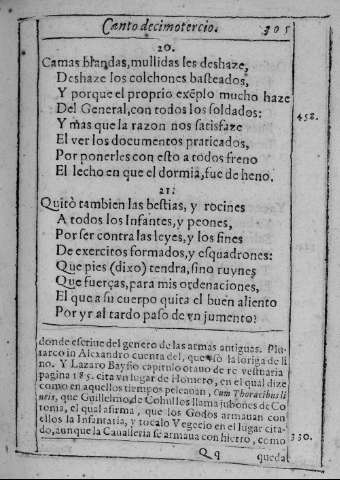 Canto decimotercio. 305
20.
Camas blandas, mullidas les deshaze,
Deshaze los colchones basteados,
Y porque el proprio exẽplo mucho haze
Del General, con todos los soldados:
Y mas que la razon nos satisfaze
El ver los documentos praticados,
Por ponerles con esto a todos freno
El lecho en que el dormia, fue de heno.
21.
Quitò tambien las bestias, y rocines
A todos los Infantes, y peones,
Por ser contra las leyes, y los fines
De exercitos formados, y esquadrones:
Que pies (dixo) tendra, sino ruynes
Que fuerças, para mis ordenaciones,
El que a su cuerpo quita el buen aliento
Por yr al tardo paso de vn jumento?
458.
donde escriue del genero de las armas antiguas. Plu
tarco in Alexandro cuenta del, que vsò la loriga de li
no. Y Lazaro Bayfio capitulo otauo de re vestiaria
pagina 185. cita vn lugar de Homero, en el qual dize
como en aquellos tiempos peleauan, Cum Thoracibus li
neis, que Guillelmo de Cohul les llama jubones de Co
tonia, el qual afirma, que los Godos armauan con
ellos la Infantaria, y tocalo Vegecio en el lugar cita-
do, aunque la Caualleria se armaua con hierro, como
350.
Q q queda